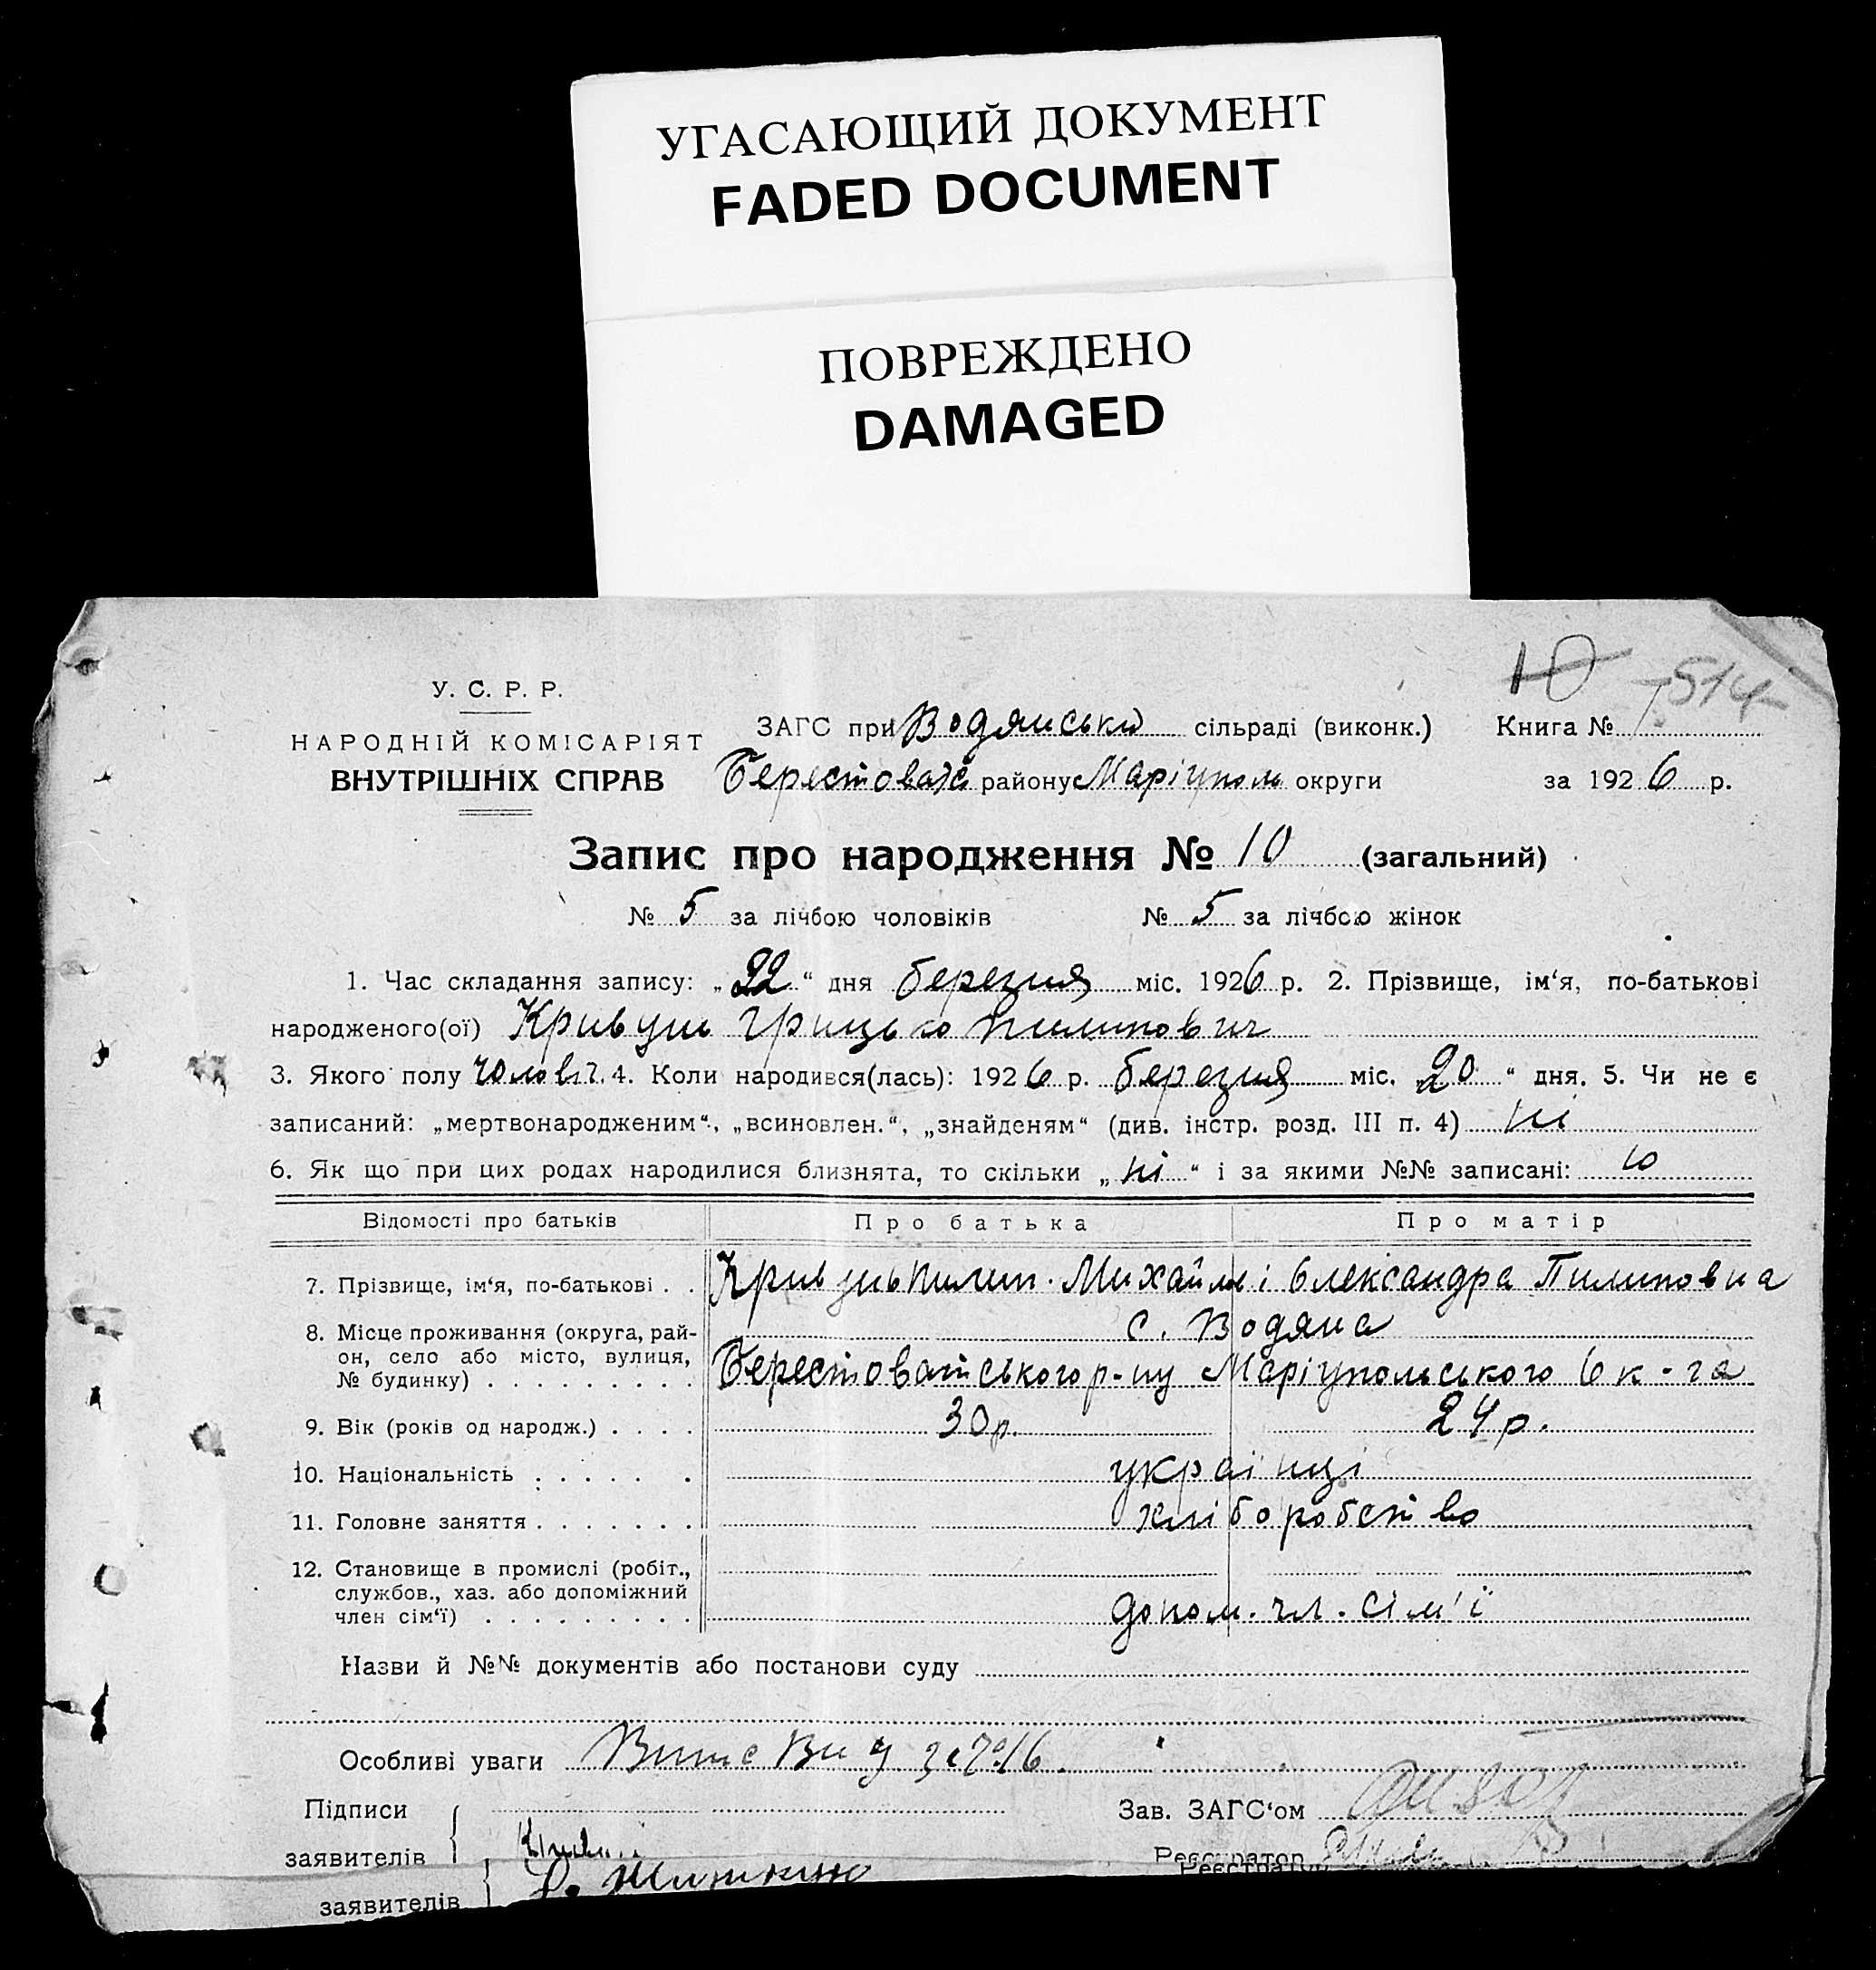 УГАСАЮЩИЙ ДОКУМЕНТ
FADED DOCUMENT
ПОВРЕЖДЕНО
DAMAGED
10 514
У. С. Р. Р.
НАРОДНІЙ КОМІСАРІЯТ
ВНУТРІШНІХ СПРАВ
ЗАГС при Водянській сільраді (виконк.) Книга №
району Маріуполь округи за 1926 р.
Запис про народження № 10 (загальний)
№ 5 за лічбою чоловіків № 5 за лічбою жінок
1. Час складання запису: „22“ дня березня міс. 1926 р. 2. Прізвище, ім‘я, по-батькові
народженого(ої) Кривуць Грицько Пилипович
3. Якого полу чоловіч. 4. Коли народився(лась): 1926 р. березня міс. „20“ дня. 5. Чи не є
записаний: „мертвонародженим“, „всиновлен.“, „знайденям“ (див. інстр. розд. III п. 4) ні
6. Як що при цих родах народилися близнята, то скільки „ні“ і за якими №№ записані: 10
Відомості про батьків Про батька Про матір
7. Прізвище, ім‘я, по-батькові . . Кривуць Пилип. Михайл. і Олександра Пилиповна
8. Місце проживання (округа, рай-
он, село або місто, вулиця,
№ будинку) . . . . . . . . .
с. Водяна
Берестоватського р-ну Маріупольського Ок-га
9. Вік (років од народж.) . . . . 30р. 24р.
10. Національність . . . . . . украінці
11. Головне заняття . . . . . . . хліборобство
12. Становище в промислі (робіт.,
службов., хаз. або допоміжний
член сім‘ї) . . . . . . . . . допом. чл. сім'ї
Назви й №№ документів або постанови суду
Особливі уваги
Підписи
заявителів
Зав. ЗАГС‘ом
Реєстратор
Реєстратор
заявителів